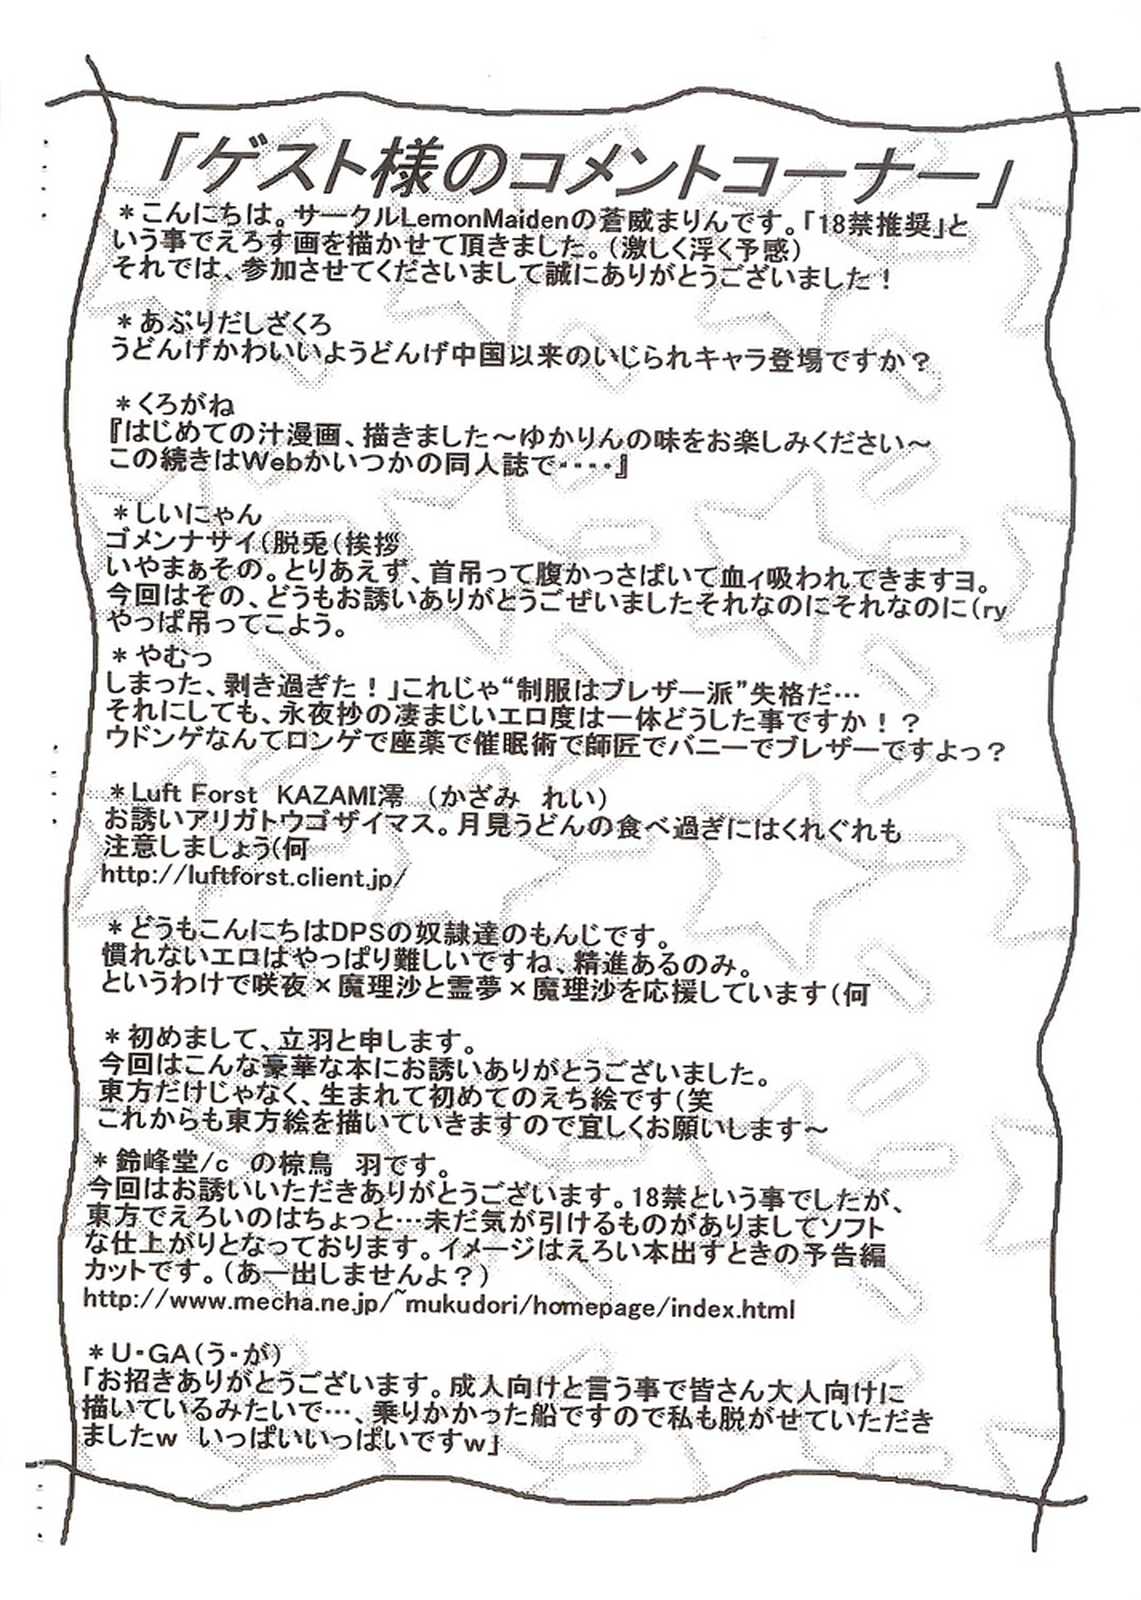 「ゲスト様のコメントコーナー」
＊こんにちは。サークルLemonMaidenの蒼威まりんです。「18禁推奨」と
いう事でえろす画を描かせて頂きました。(激しく浮く予感)
それでは、参加させてくださいまして誠にありがとうございました！
＊あぶりだしざくろ
うどんげかわいいようどんげ中国以来のいじられキャラ登場ですか？
＊くろがね
『はじめての汁漫画、描きました～ゆかりんの味をお楽しみください～
この続きはＷｅｂかいつかの同人誌で・・・・』
＊しいにゃん
ゴメンナサイ(脱兎(挨拶
いやまぁその。とりあえず、首吊って腹かっさばいて血ィ吸われてきますヨ。
今回はその、どうもお誘いありがとうごぜいましたそれなのにそれなのに(ry
やっぱ吊ってこよう。
＊やむっ
しまった、剥き過ぎた！」これじゃ“制服はブレザー派”失格だ…
それにしても、永夜抄の凄まじいエロ度は一体どうした事ですか！？
ウドンゲなんてロンゲで座薬で催眠術で師匠でバニーでブレザーですよっ？
＊Luft Forst　KAZAMI澪　(かざみ　れい)
お誘いアリガトウゴザイマス。月見うどんの食べ過ぎにはくれぐれも
注意しましょう(何
http://luftforst.client.jp/
＊どうもこんにちはDPSの奴隷達のもんじです。
慣れないエロはやっぱり難しいですね、精進あるのみ。
というわけで咲夜×魔理沙と霊夢×魔理沙を応援しています(何
＊初めまして、立羽と申します。
今回はこんな豪華な本にお誘いありがとうございました。
東方だけじゃなく、生まれて初めてのえち絵です(笑
これからも東方絵を描いていきますので宜しくお願いします～
＊鈴峰堂/c　の椋鳥　羽です。
今回はお誘いいただきありがとうございます。18禁という事でしたが、
東方でえろいのはちょっと…未だ気が引けるものがありましてソフト
な仕上がりとなっております。イメージはえろい本出すときの予告編
カットです。(あー出しませんよ？)
http://www.mecha.ne.jp/~mukudori/homepage/index.html
＊Ｕ・ＧＡ(う・が)
「お招きありがとうございます。成人向けと言う事で皆さん大人向けに
描いているみたいで…、乗りかかった船ですので私も脱がせていただき
ましたｗ　いっぱいいっぱいですｗ」